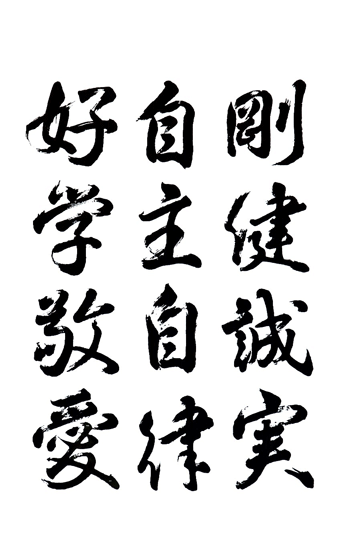 剛健誠実
自主自律
好学敬愛